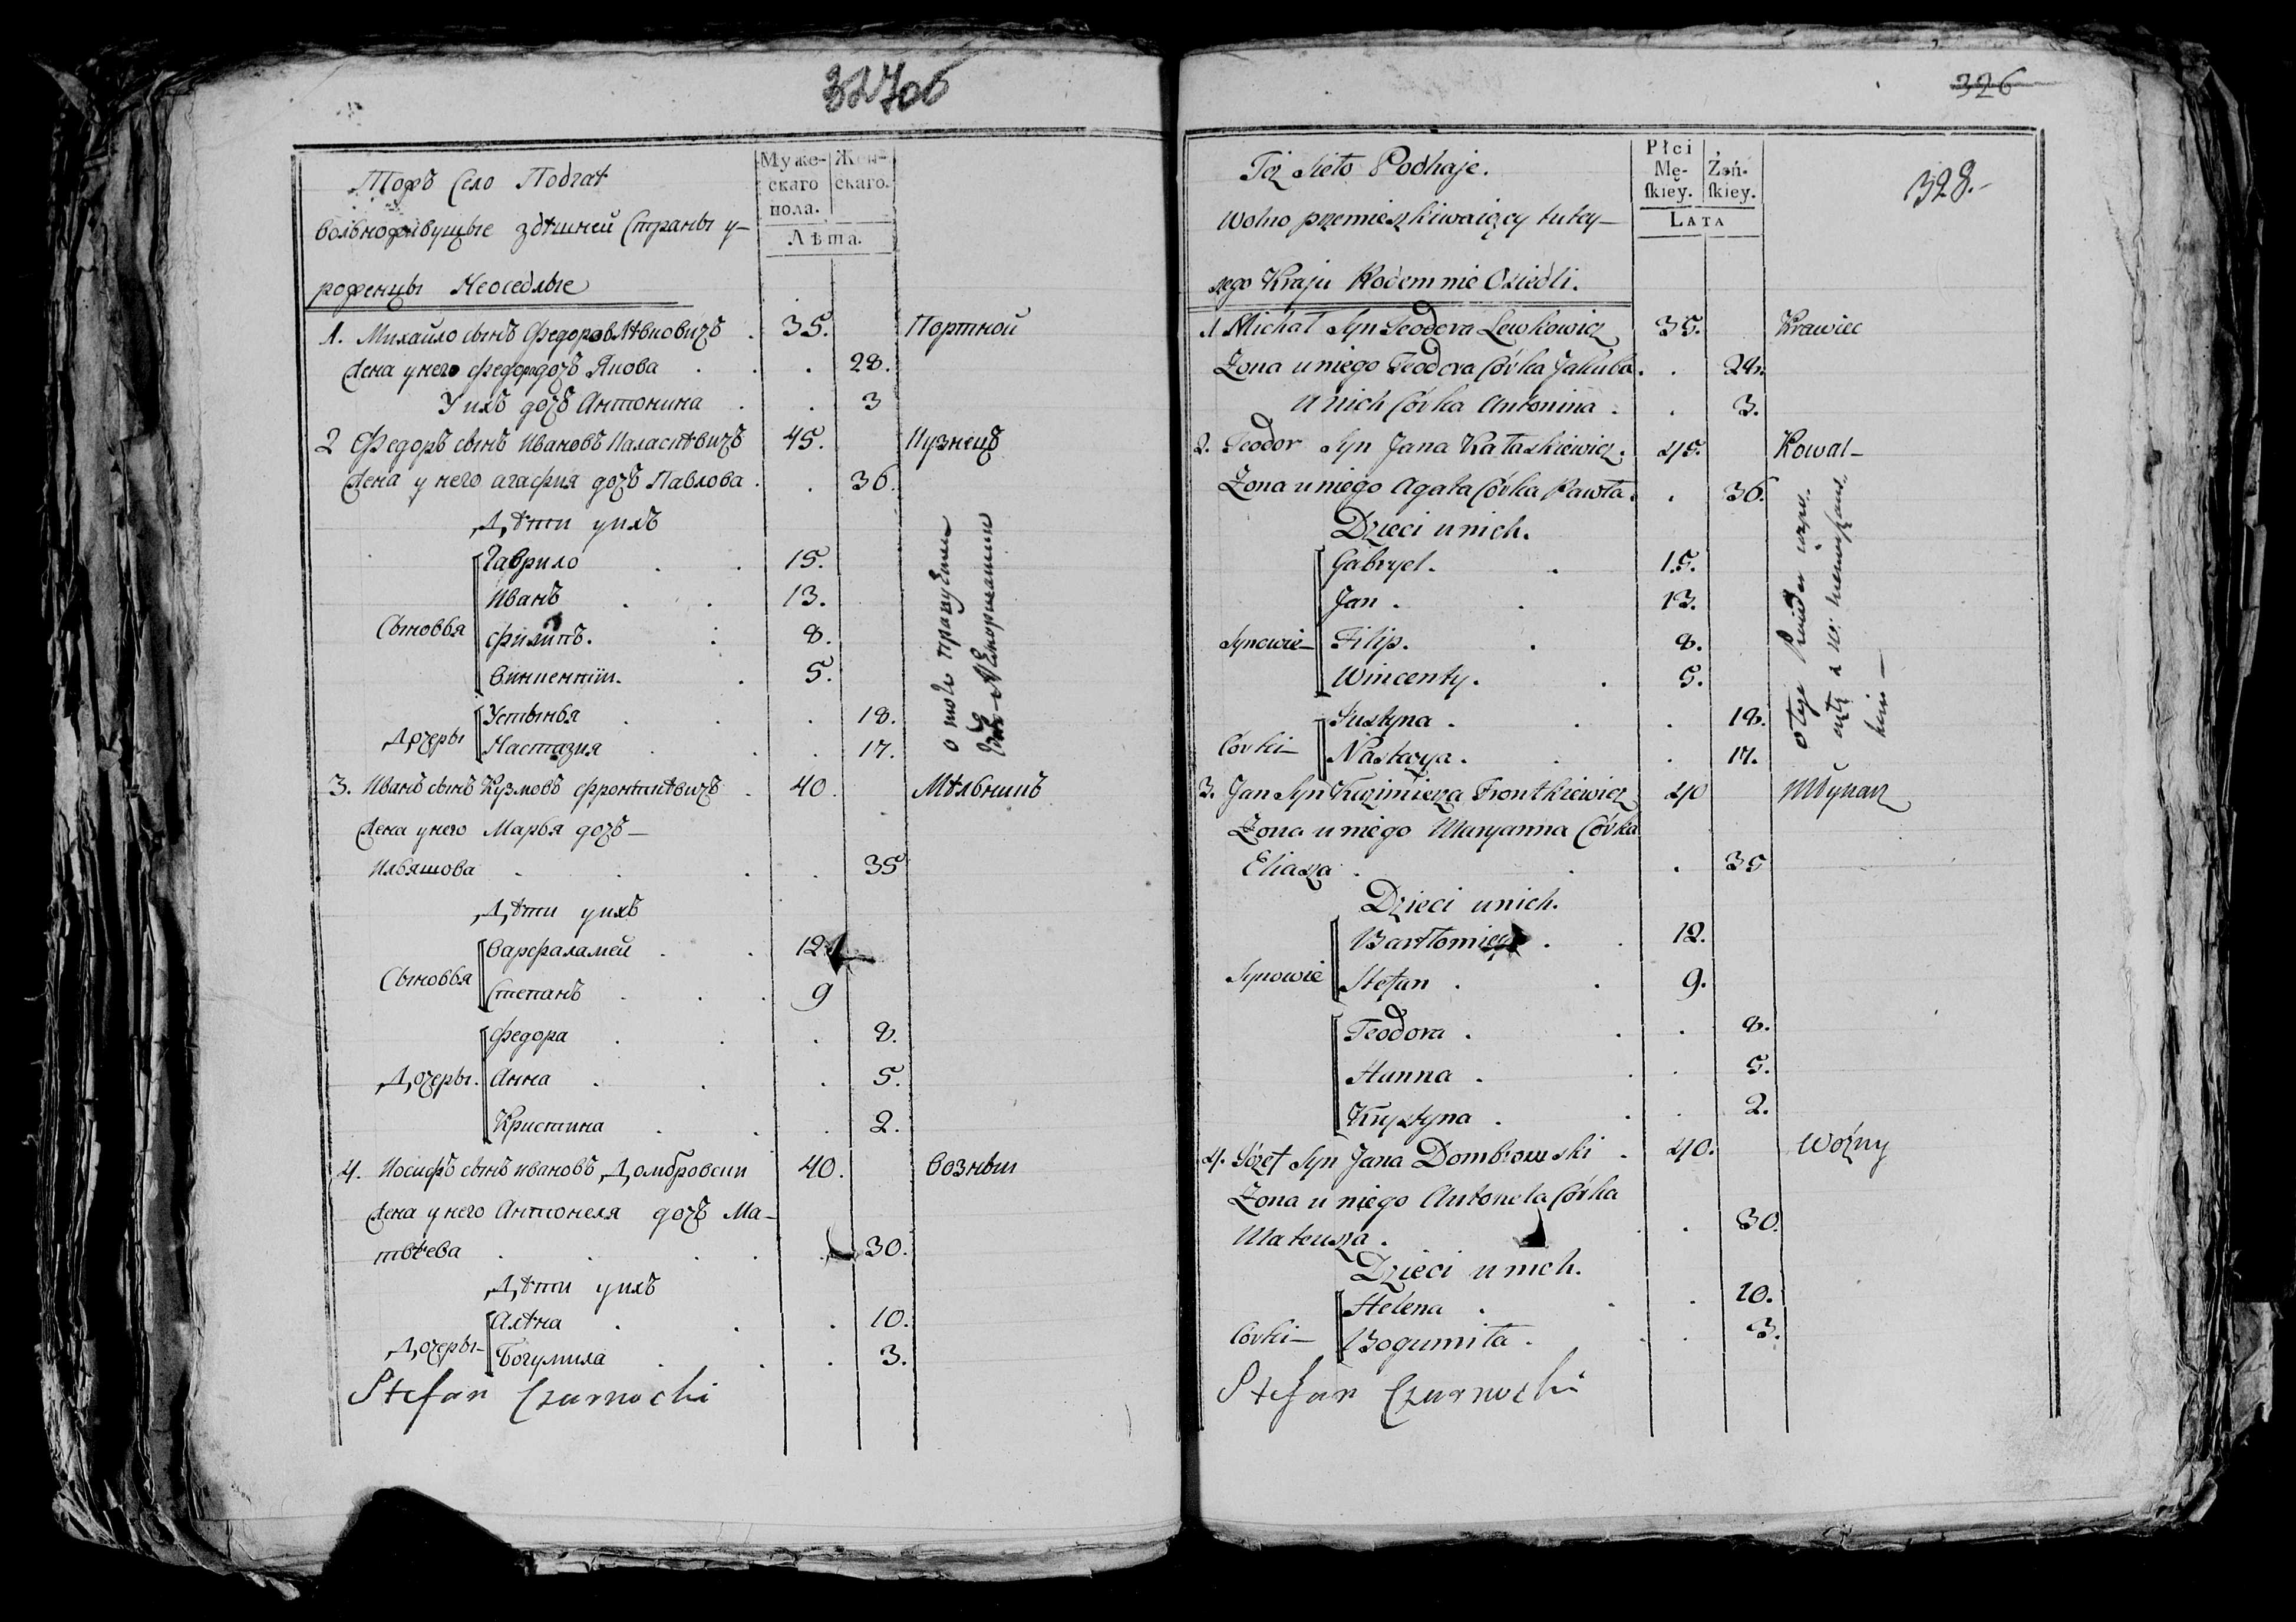 327об
Тожъ Село Подгаѣ
вольноживущые здѣшней Страны у-
роженцы Неоседлые
Муже-
скаго
пола.
Жен-
скаго.
Лѣта.
1. Михайло сынъ Федоров Лѣвковичъ . 35. Портной
Жена у него Федора дочъ Якова . . . 28.
У ихъ дочъ Антонина . . 3
2 Федоръ сынъ Ивановъ Каласкѣвичъ 45. Кузнецъ
Жена у него агафия дочъ Павлова . . 36.
Дѣти у ихъ
Сыновья
Гаврило . . 15.
Иванъ . . 13.
Филипъ. . 8.
Винцентій. . 5.
Дочеры
Устынья . . . 18.
Настазия . . 17.
3. Иванъ сынъ Кузмовъ Фронткѣвичъ . 40. Мѣльникъ
Жена у него Марья дочъ-
Ильяшова . . . . 35
Дѣти у ихъ
Сыновья
Варфаламей . . 12.
Степанъ . . . 9
Дочеры.
Федора . . . 8.
Анна . . . 5.
Кристина . . . 2.
4. Иосифъ сынъ ивановъ Домбровски 40. Возный
Жена у него Антонеля дочъ Ма-
твѣева . . . . 30.
Дѣти у ихъ
Дочеры-
Алѣна . . . 10.
Богумила . . . 3.
Stefan Czarnocki
326
328.-
Toż Sioło Podhaje.
Wolno przemieszkiwaiący tutey-
szego Kraju Rodem nie Osiedli.
Płci
Mę-
skiey.
Żeń-
skiey.
LATA
1 Michał Syn Teodora Lewkowicz 35. Krawiec
Żona u niego Teodora Córka Jakuba . . 28.
U nich Córka Antonina . . 3.
2. Teodor Syn Jana Kałaskiewicz. 45. Kowal-
Żona u niego Agata Córka Pawła. . 36.
Dzieci u nich.
Synowie-
Gabryel. . 15.
Jan . . 13.
Filip. . 8.
Wincenty. . 5.
Córki-
Justyna . . . 18.
Nastazya. . . 17.
3. Jan Syn Kazimierza Frontkiewicz 40 Młynarz
Żona u niego Maryanna Córka
Eliasza . . . 35
Dzieci u nich.
Synowie
Bartłomiey . . 12.
Stefan . . 9.
Teodora . . . 8.
Hanna . . . 5.
Krystyna . . . 2.
4. Józef Syn Jana Dombrowski . 40. Woźny
Żona u niego Antonela Córka
Mateusza . . . 30.
Dzieci u nich.
Córki-
Helena . . . 10.
Bogumiła . . . 3.
Stefan Czarnocki